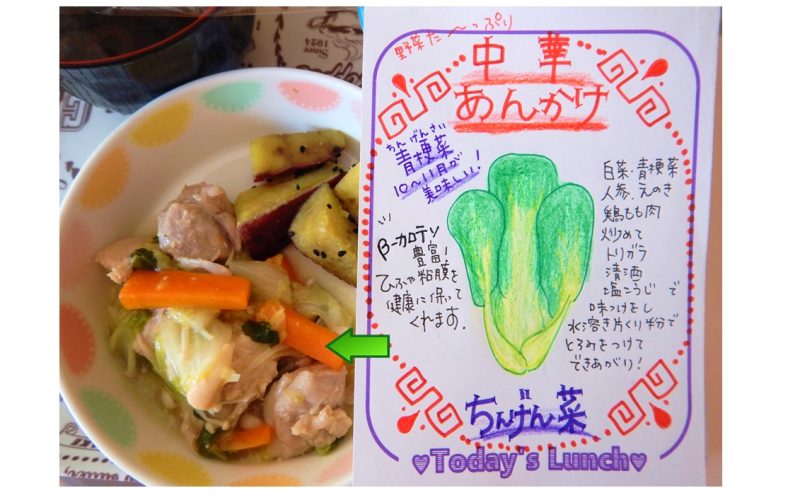 Since
1924
野菜た〜っぷり
中華
あんかけ
ちんげんさい
青梗菜
10〜11月が
美味しい!
β-カロテン
豊富!
ひふや粘膜を
健康に保って
くれます.
白菜・青梗菜
人参、えのき
鶏もも肉
炒めて
トリガラ
清酒
塩こうじ で
味つけをし
水溶き片くり粉で
とろみをつけて
できあがり!
ちんげん菜
♥Today's Lunch♥